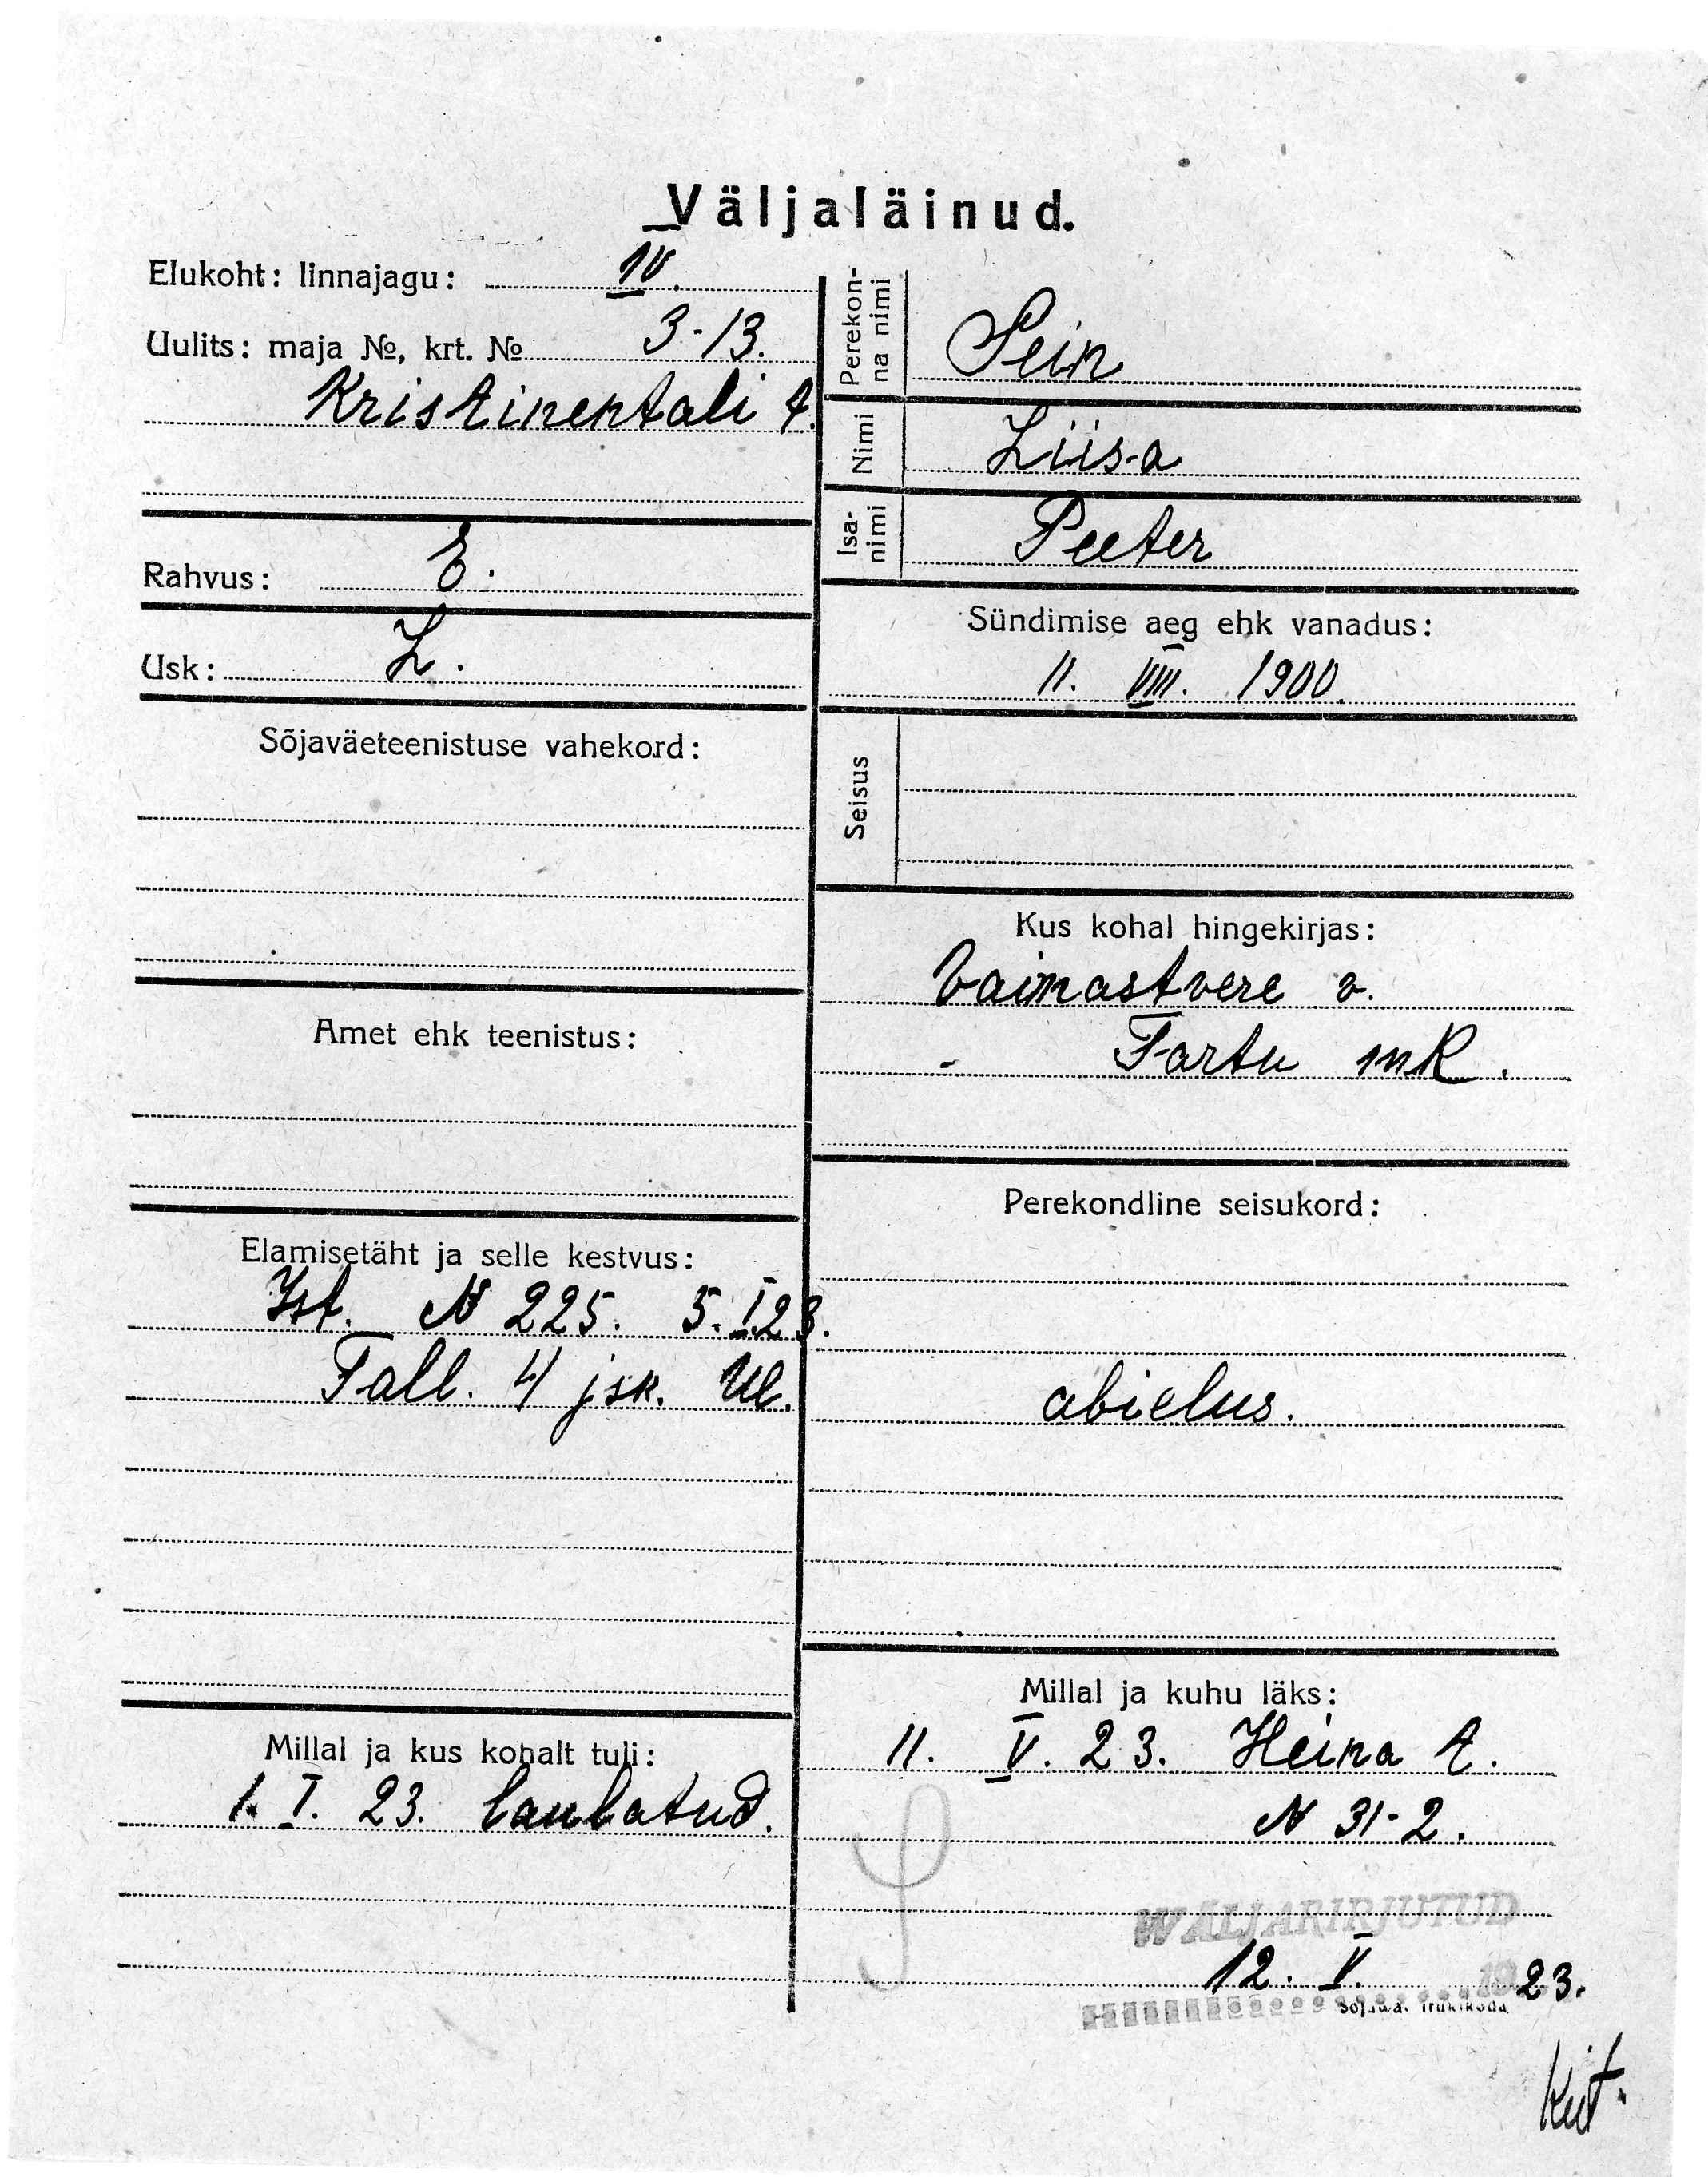 Väljaläinud.
Elukoht: linnajagu: IV.
Uulits: maja №, krt. № 3-13.
Kristinentali t.
Rahvus: E.
Usk: L.
Sõjaväeteenistuse vahekord:
Amet ehk teenistus:
Elamisetäht ja selle kestvus:
Ist. N 225. 5. I. 23.
Tall. 4 jsk. Ül.
Millal ja kus kohalt tuli:
1. I. 23. laulatud.
Perekon-
na nimi
Sein
Nimi
Liisa
Isa-
nimi
Peeter
Sündimise aeg ehk vanadus:
11. VIII. 1900.
Seisus
Kus kohal hingekirjas:
Vaimastvere v.
Tartu mk.
Perekondline seisukord:
abielus.
Millal ja kuhu läks:
11. V. 23. Heina t.
N 31-2.
WÄLJAKIRJUTUD
12. V. 1923.
Sõjawä. Trükikoda